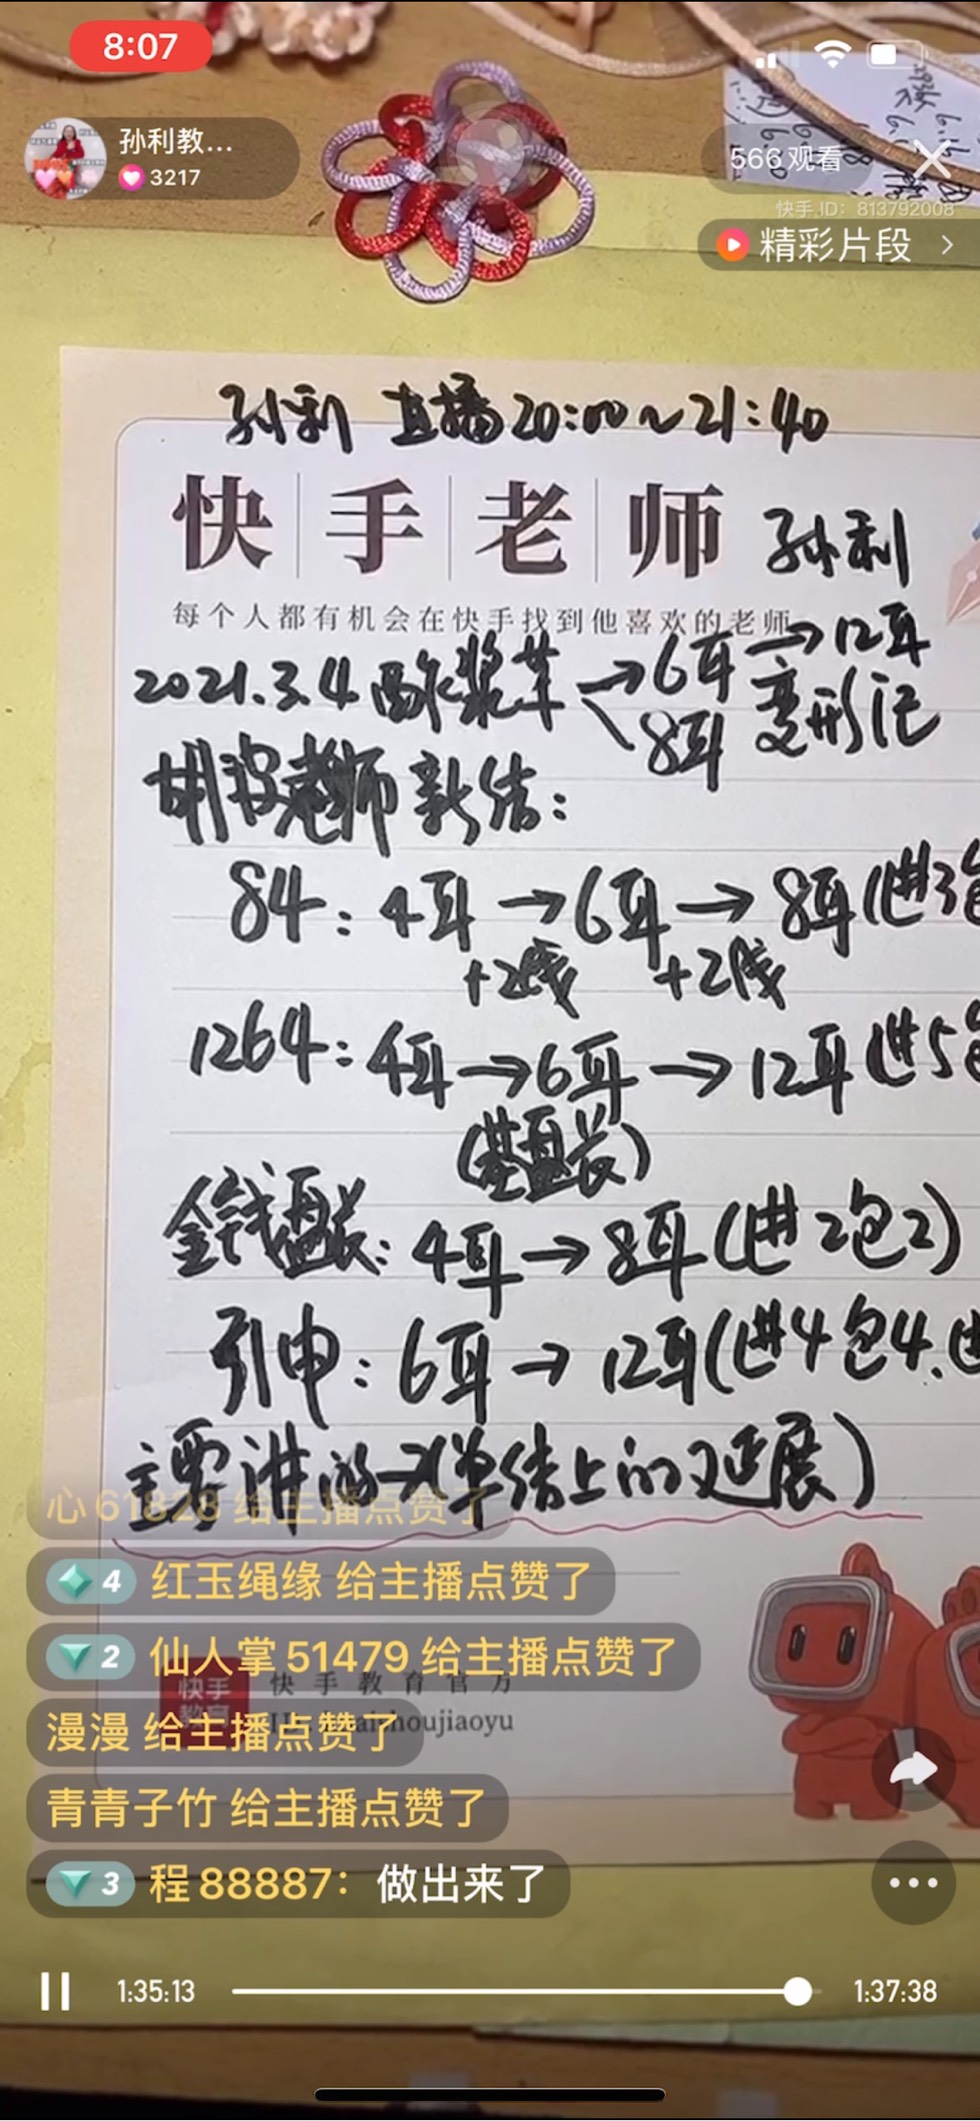 8:07
孙利教...
3217
566观看
快手 ID: 813792008
精彩片段
孙利 直播20:00~21:40
快手老师 孙利
每个人都有机会在快手找到他喜欢的老师
2021.3.4 酢浆草→6耳→12耳
8耳 变形记
胡波老师新结：
84：4耳→6耳→8耳(进3
+2线 +2线
1264：4耳→6耳→12耳(进5
(葚盘长)
金钱盘长：4耳→8耳(进2包2)
引申：6耳→12耳(进4包4.
主要讲的 单结上的延展)
心61828 给主播点赞了
4 红玉绳缘 给主播点赞了
2 仙人掌51479 给主播点赞了
快手教育官方
漫漫 给主播点赞了
青青子竹 给主播点赞了
3 程88887：做出来了
1:35:13
1:37:38